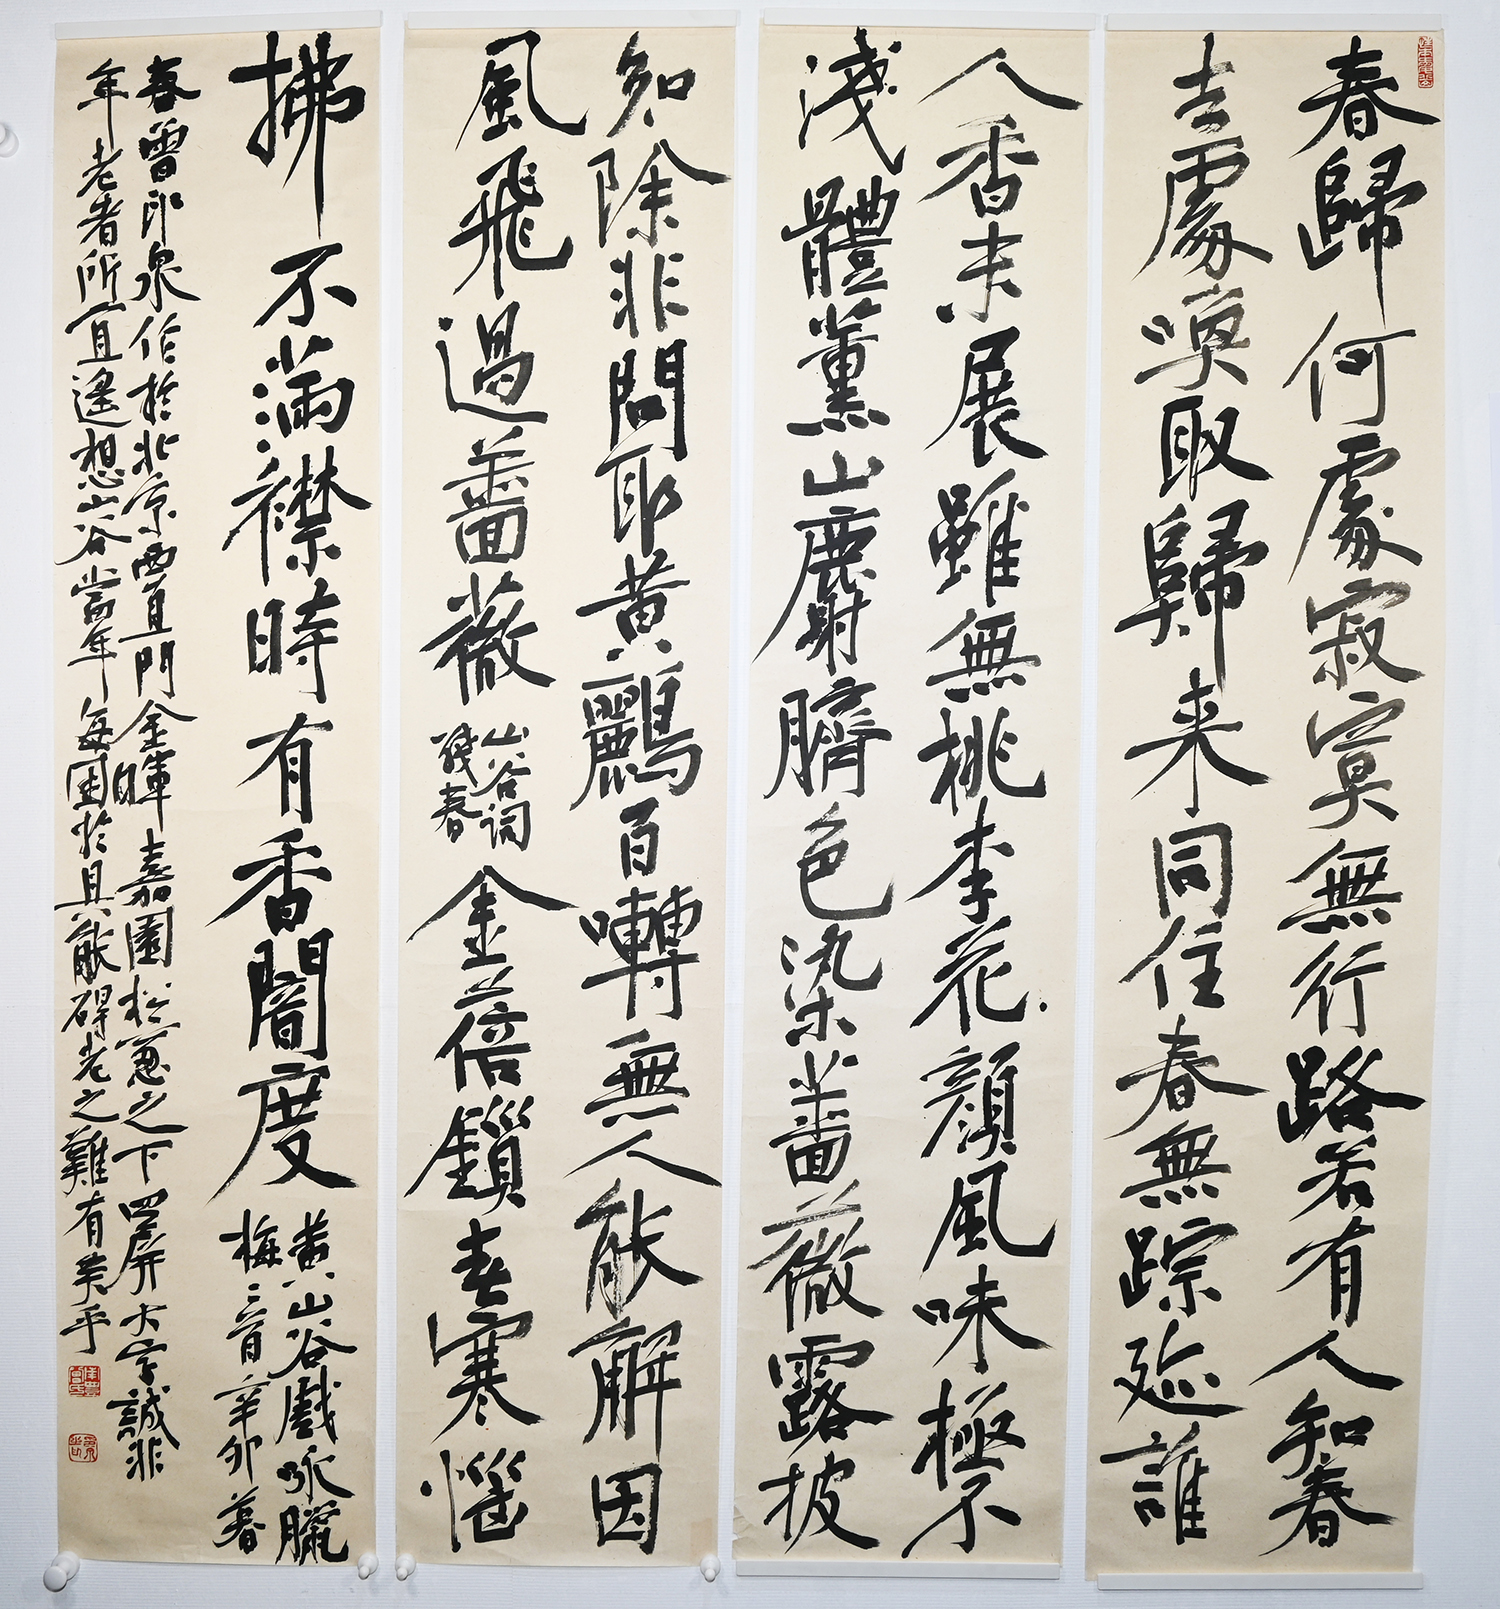 春歸何處寂寞無行路若有人知春
去處喚取歸来同住春無踪迹誰
人香未展雖無桃李花顔風味極不
淺體薰山麝臍色染薔薇露披
知除非問取黄鸝百囀無人能解因
風飛過薔薇
山谷詞
殘春
金蓓鎖春寒惱
拂不滿襟時有香闇度
黄山谷戲咏臘
梅二首辛卯暮
春曾印泉作於北京西直門金暉嘉園松窓之下四屏大字誠非
年老者所宜遙想山谷當年每困於具能碍老之難有美乎